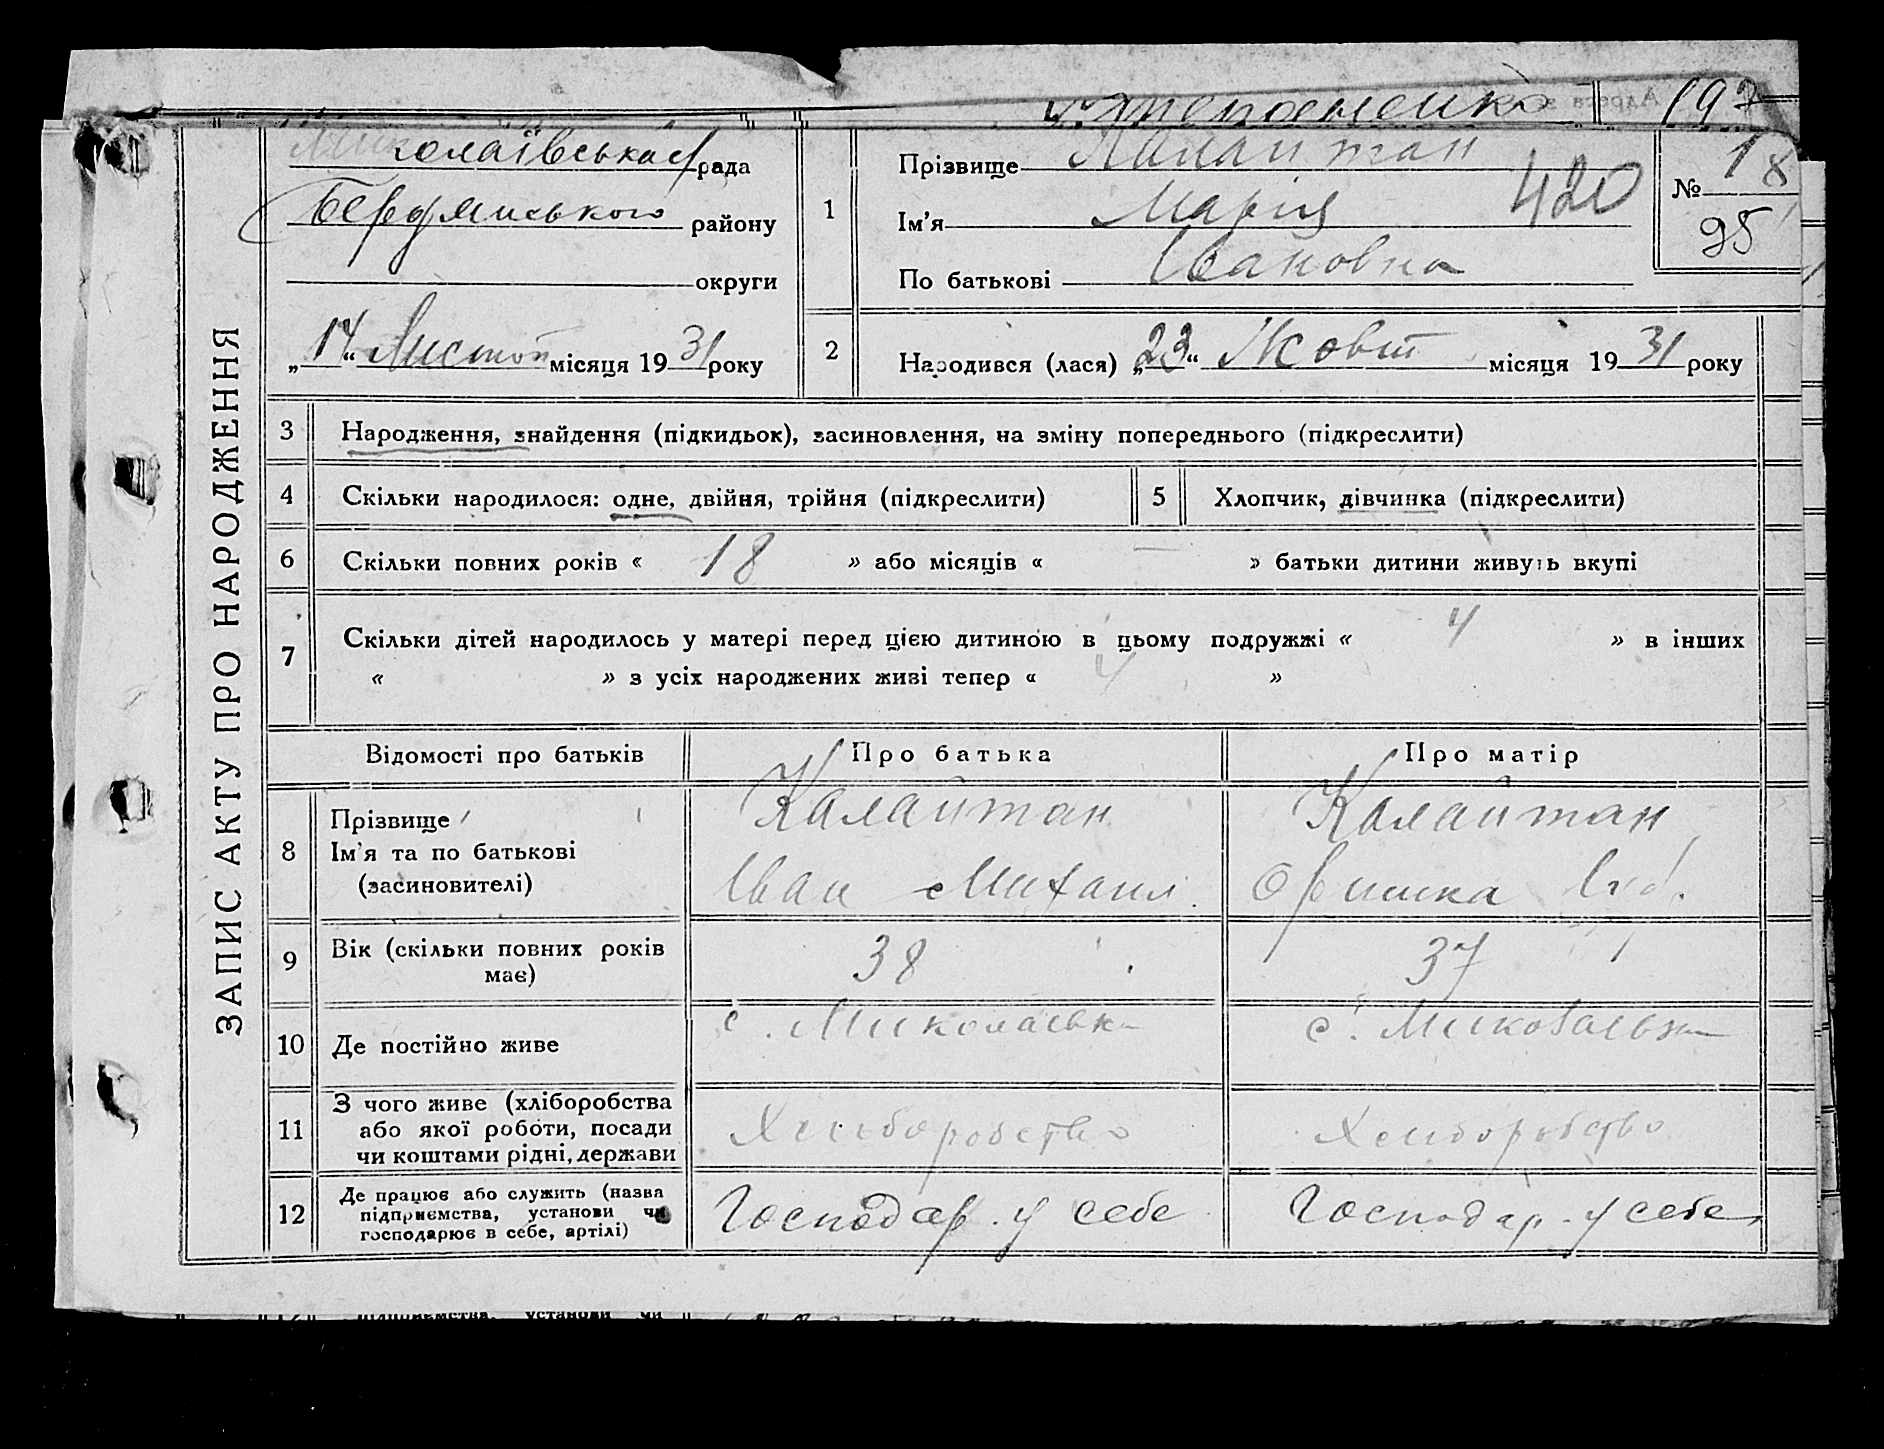 197
Миколаївська рада
Бердянського району
округи
„14“ Листоп місяця 1931 року
1
Прізвище Калайтан
Ім'я Марія
420
По батькові Івановна
№ 18
95
2
Народився (лася) „23“ Жовт місяця 1931 року
ЗАПИС АКТУ ПРО НАРОДЖЕННЯ
3 Народження, знайдення (підкидьок), засиновлення, на зміну попереднього (підкреслити)
4 Скільки народилося: одне, двійня, трійня (підкреслити) 5 Хлопчик, дівчинка (підкреслити)
6 Скільки повних років « 18 » або місяців « — » батьки дитини живуть вкупі
7 Скільки дітей народилось у матері перед цією дитиною в цьому подружжі « 4 » в інших
« » з усіх народжених живі тепер « 4 »
Відомості про батьків Про батька Про матір
8 Прізвище Калайтан Калайтан
Ім'я та по батькові
(засиновителі) Іван Михаил. Оришка
9 Вік (скільки повних років
має) 38 37
10 Де постійно живе с. Миколаєвка с. Миколаєвка
11 З чого живе (хліборобства
або якої роботи, посади
чи коштами рідні, держави Хліборобство Хліборобство
12 Де працює або служить (назва
підприємства, установи чи
господарює в себе, артілі) Господар. у себе Господар. у себе
12 підприємства, установи чи